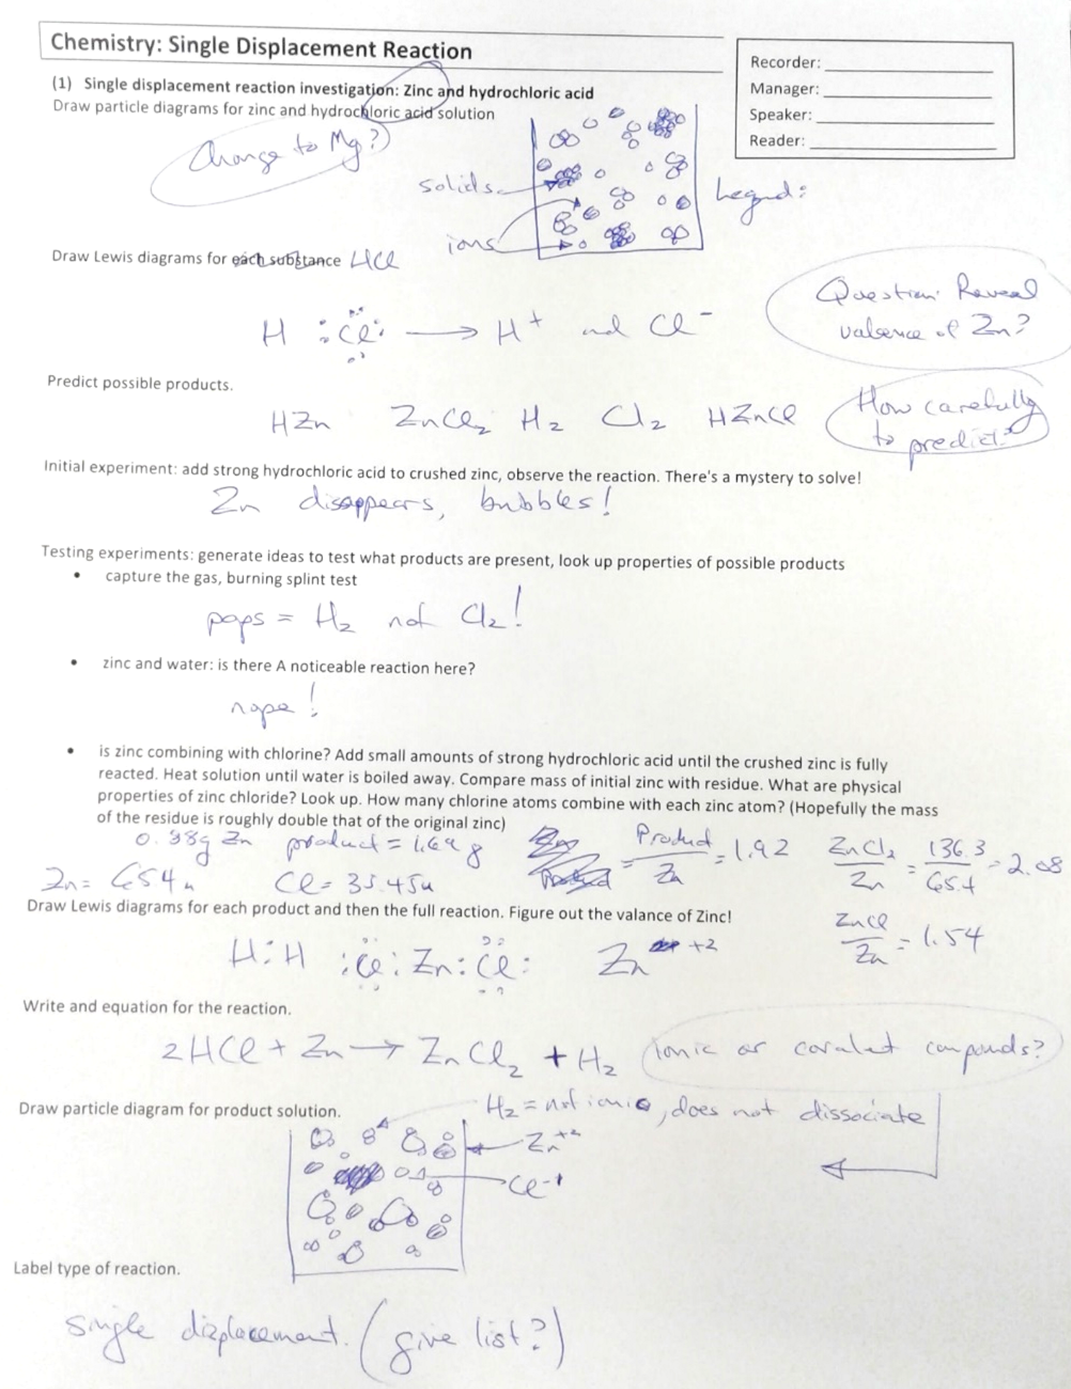 Chemistry: Single Displacement Reaction
Recorder:
Manager:
Speaker:
Reader:
(1) Single displacement reaction investigation: Zinc and hydrochloric acid
Draw particle diagrams for zinc and hydrochloric acid solution
Change to Mg?
solids
ions
Legend:
Draw Lewis diagrams for each substance HCl
H :Cl: → H+ and Cl-
Question: Reveal
valence of Zn?
Predict possible products.
HZn ZnCl2 H2 Cl2 HZnCl
How carefully
to predict?
Initial experiment: add strong hydrochloric acid to crushed zinc, observe the reaction. There's a mystery to solve!
Zn disappears, bubbles!
Testing experiments: generate ideas to test what products are present, look up properties of possible products
• capture the gas, burning splint test
pops = H2 not Cl2!
• zinc and water: is there A noticeable reaction here?
nope!
• is zinc combining with chlorine? Add small amounts of strong hydrochloric acid until the crushed zinc is fully
reacted. Heat solution until water is boiled away. Compare mass of initial zinc with residue. What are physical
properties of zinc chloride? Look up. How many chlorine atoms combine with each zinc atom? (Hopefully the mass
of the residue is roughly double that of the original zinc)
0.88g Zn product = 1.69g
Product/Zn = 1.92
ZnCl2/Zn = 136.3/65.4 = 2.08
Zn = 65.4u Cl = 35.45u
Draw Lewis diagrams for each product and then the full reaction. Figure out the valance of Zinc!
ZnCl/Zn = 1.54
H:H :Cl:Zn:Cl: Zn +2
Write and equation for the reaction.
2HCl + Zn → ZnCl2 + H2 (ionic or covalent compounds?
Draw particle diagram for product solution.
H2 = not ionic, does not dissociate
Zn+2
Cl-1
Label type of reaction.
single displacement. (give list?)